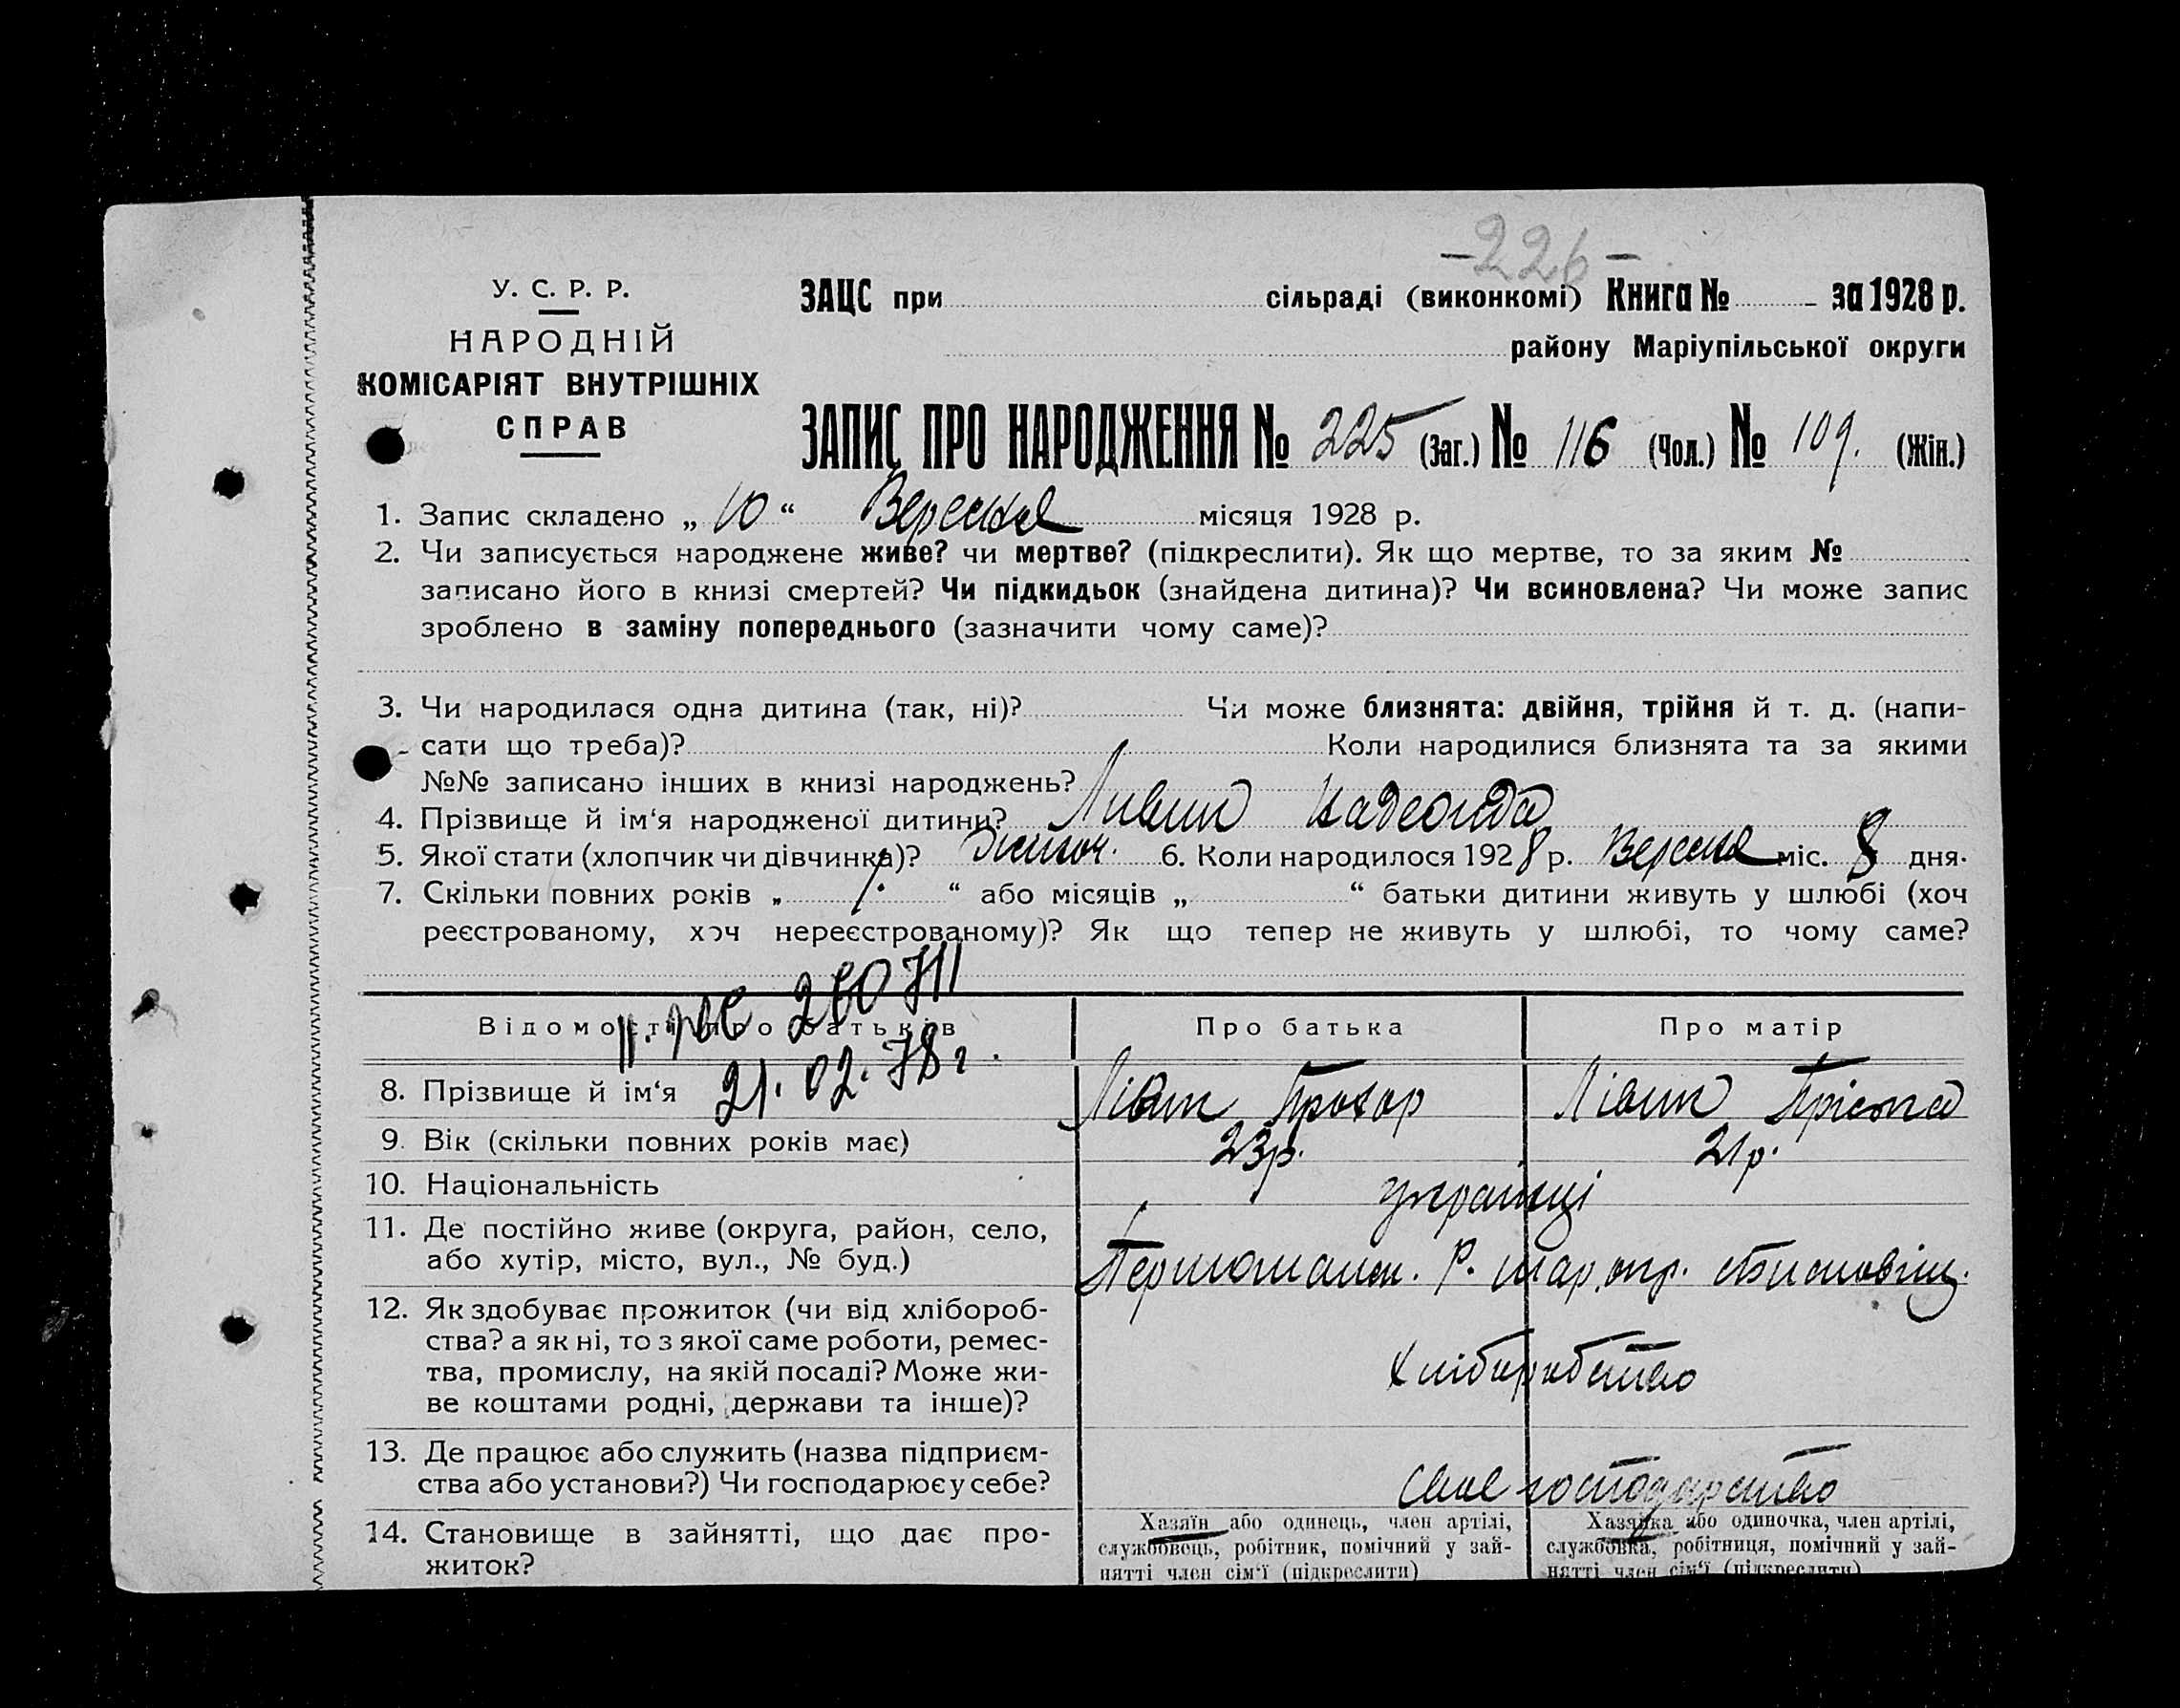 -226-
У. С. Р. Р.
НАРОДНІЙ
КОМІСАРІЯТ ВНУТРІШНІХ
СПРАВ
ЗАЦС при сільраді (виконкомі) Книга № за 1928 р.
району Маріупільської округи
ЗАПИС ПРО НАРОДЖЕННЯ № 225 (Заг.) № 116 (Чол.) № 109. (Жін.)
1. Запис складено „ 10 “ Вересня місяця 1928 р.
2. Чи записується народжене живе? чи мертве? (підкреслити). Як що мертве, то за яким №
записано його в книзі смертей? Чи підкидьок (знайдена дитина)? Чи всиновлена? Чи може запис
зроблено в заміну попереднього (зазначити чому саме)?
3. Чи народилася одна дитина (так, ні)? Чи може близнята: двійня, трійня й т. д. (напи-
сати що треба)? Коли народилися близнята та за якими
№№ записано інших в книзі народжень?
4. Прізвище й ім‘я народженої дитини?
5. Якої стати (хлопчик чи дівчинка)? 6. Коли народилося 1928 р. Вересня міс. 8 дня.
7. Скільки повних років „ 1. “ або місяців „ “ батьки дитини живуть у шлюбі (хоч
реєстрованому, хоч нереєстрованому)? Як що тепер не живуть у шлюбі, то чому саме?
260711
Відомості про батьків Про батька Про матір
21.02.78 г.
8. Прізвище й ім‘я Лівин Прохор Лівин
9. Вік (скільки повних років має) 23р. 21р.
10. Національність українці
11. Де постійно живе (округа, район, село,
або хутір, місто, вул., № буд.) Р. мар. окр.
12. Як здобуває прожиток (чи від хлібороб-
ства? а як ні, то з якої саме роботи, ремес-
тва, промислу, на якій посаді? Може жи-
ве коштами родні, держави та інше)? хліборобство
13. Де працює або служить (назва підприєм-
ства або установи?) Чи господарює у себе? своє господарство
14. Становище в зайнятті, що дає про-
житок?
Хазяїн або одинець, член артілі,
службовець, робітник, помічний у зай-
нятті член сім‘ї (підкреслити)
Хазяйка або одиночка, член артілі,
службовка, робітниця, помічний у зай-
нятті член сім‘ї (підкреслити)